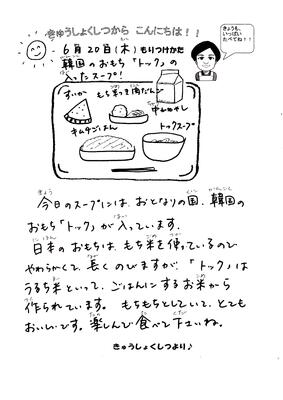 きゅうしょくしつから こんにちは！！
きょうも、
いっぱい
たべてね！！
6月20日(木) もりつけかた
韓国のおもち「トック」の
入ったスープ！
すいか
もち麦入り肉だんご
中みゃし
キムチごはん
トックスープ
今日のスープには、おとなりの国、韓国の
おもち「トック」が入っています。
日本のおもちは、もち米を使っているので
やわらかくて、長くのびますが、「トック」は
うるち米といって、ごはんにするお米から
作られています。もちもちとしていて、とても
おいしいです。楽しんで食べて下さいね。
きゅうしょくしつより♪